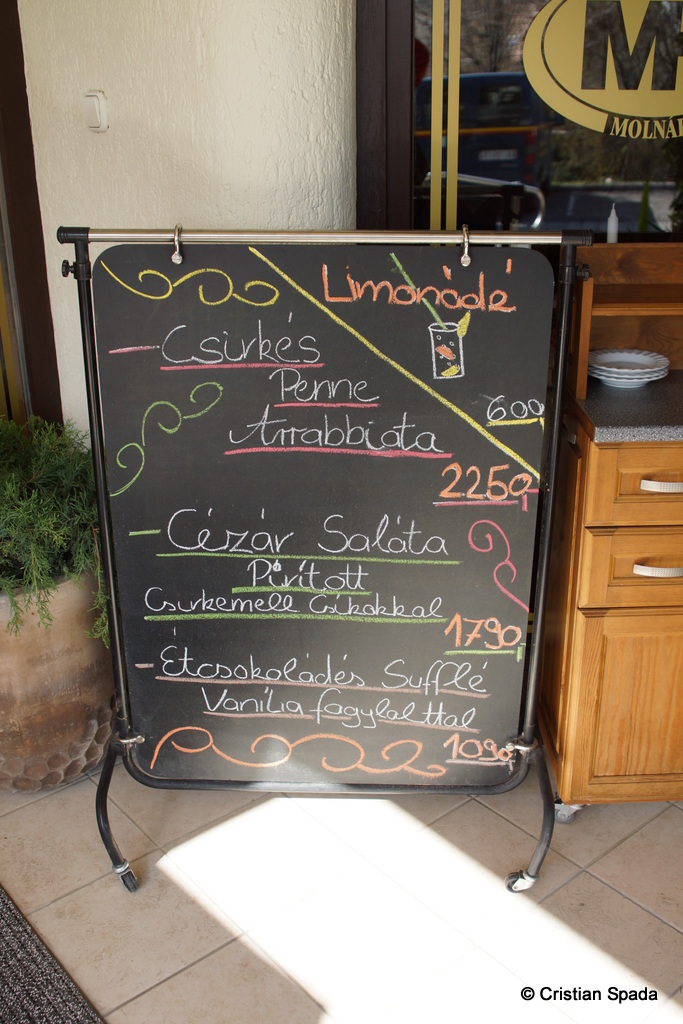 M
MOLNÁ
Limonádé
600
Csirkés
Penne
Arrabbiata
2250,-
Cézár Saláta
Pirított
Csirkemell Csíkokkal
1790,-
Étcsokoládés Sufflé
Vanília fagylalttal
1090,-
© Cristian Spada